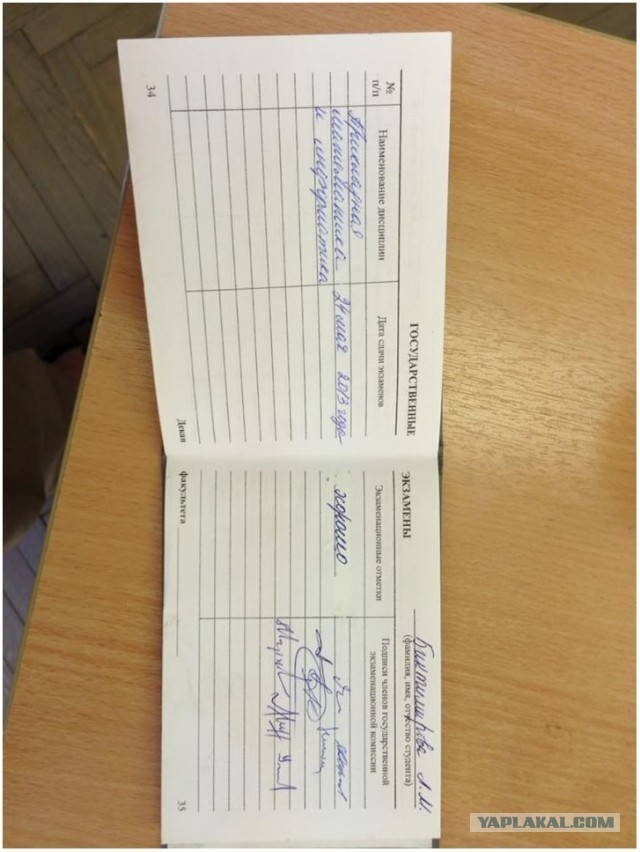 ГОСУДАРСТВЕННЫЕ
№ п/п
Наименование дисциплин
Дата сдачи экзаменов
Прикладная
математика 24 мая 2013 года
и информатика
34
Декан
ЭКЗАМЕНЫ
А.М.
(фамилия, имя, отчество студента)
Экзаменационные отметки
Подписи членов государственной
экзаменационной комиссии
хорошо
факультета
35
YAPLAKAL.COM